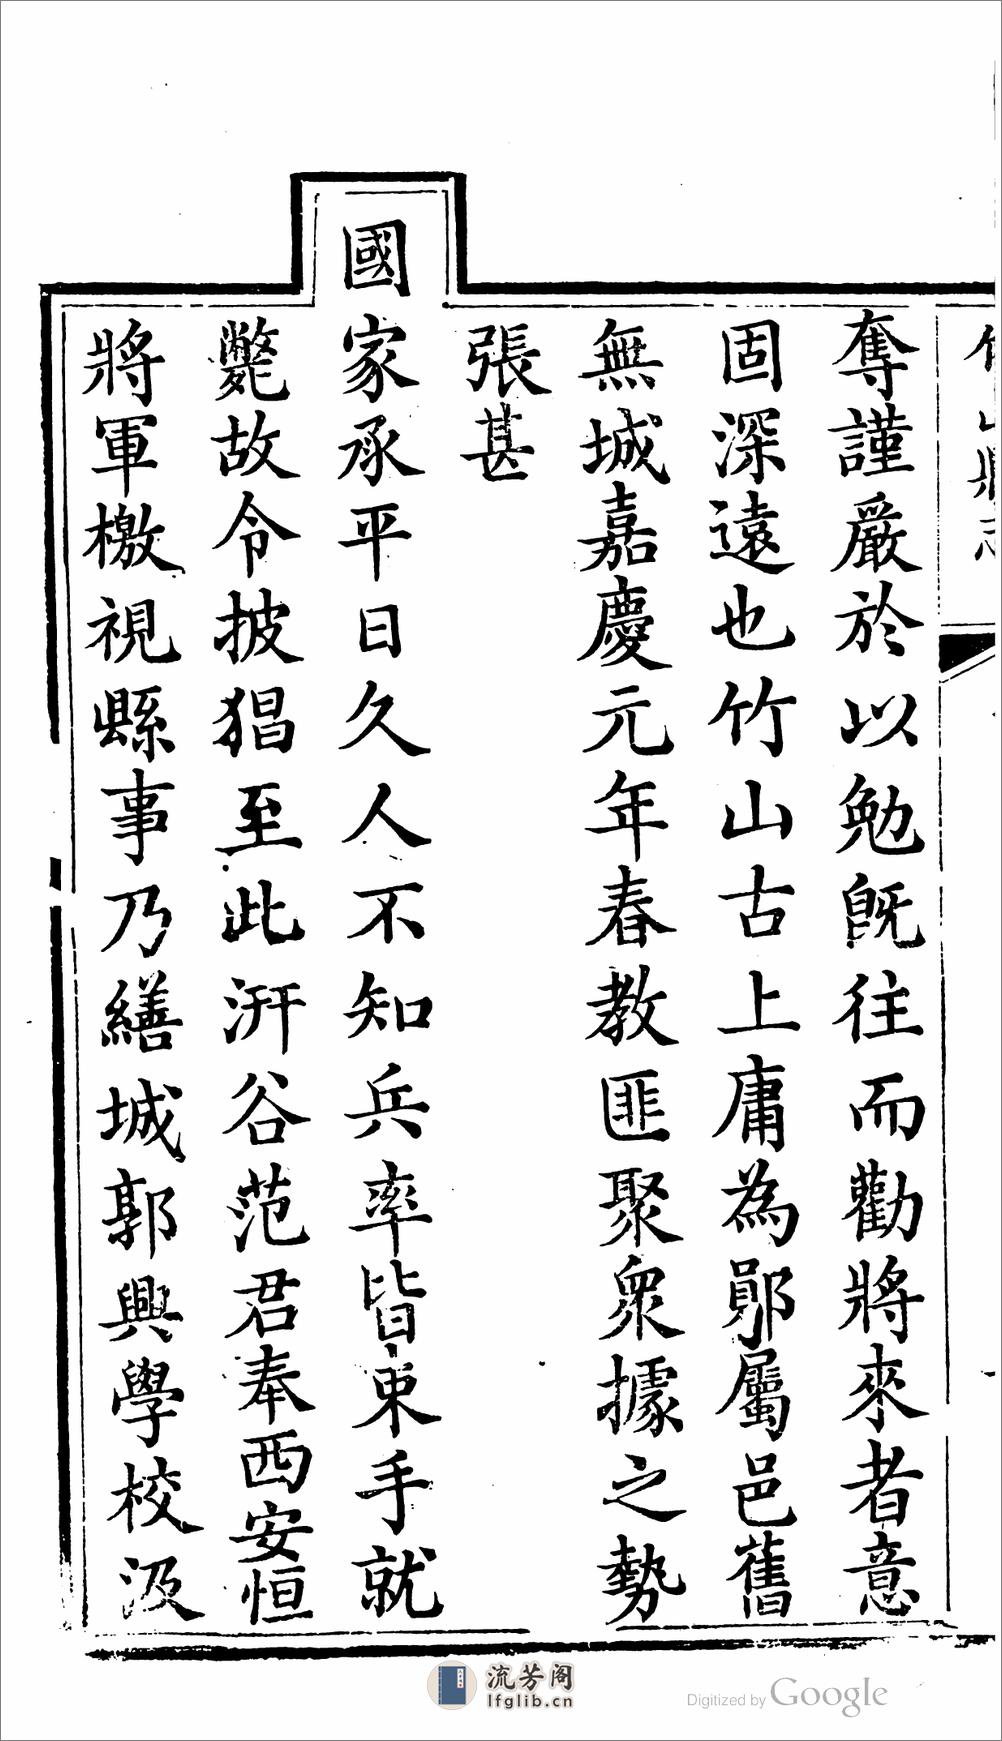 奪謹嚴於以勉旣往而勸將來者意
固深遠也竹山古上庸為鄖屬邑舊
無城嘉慶元年春教匪聚衆據之勢
張甚
國家承平日久人不知兵率皆束手就
斃故令披猖至此汧谷范君奉西安恒
將軍檄視縣事乃繕城郭興學校汲
流芳阁
lfglib.cn
Digitized by Google